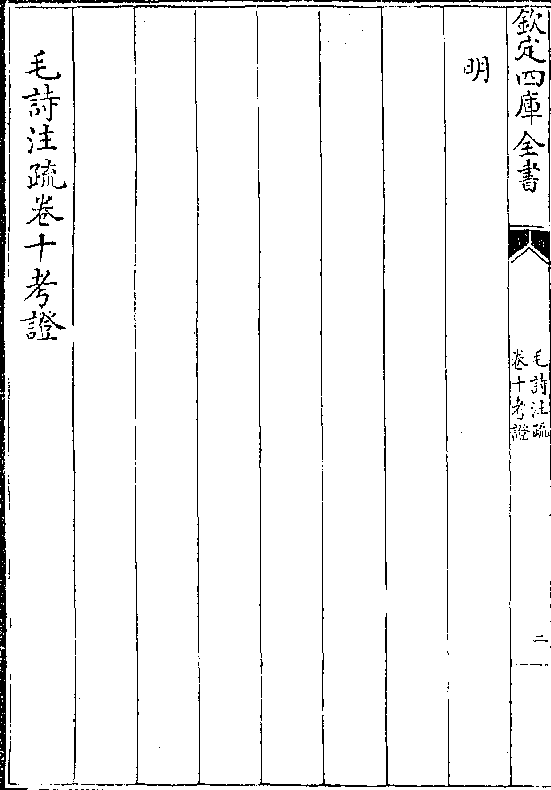 欽定四庫全書
毛詩注疏
卷十考證
二
明
毛詩注疏卷十考證